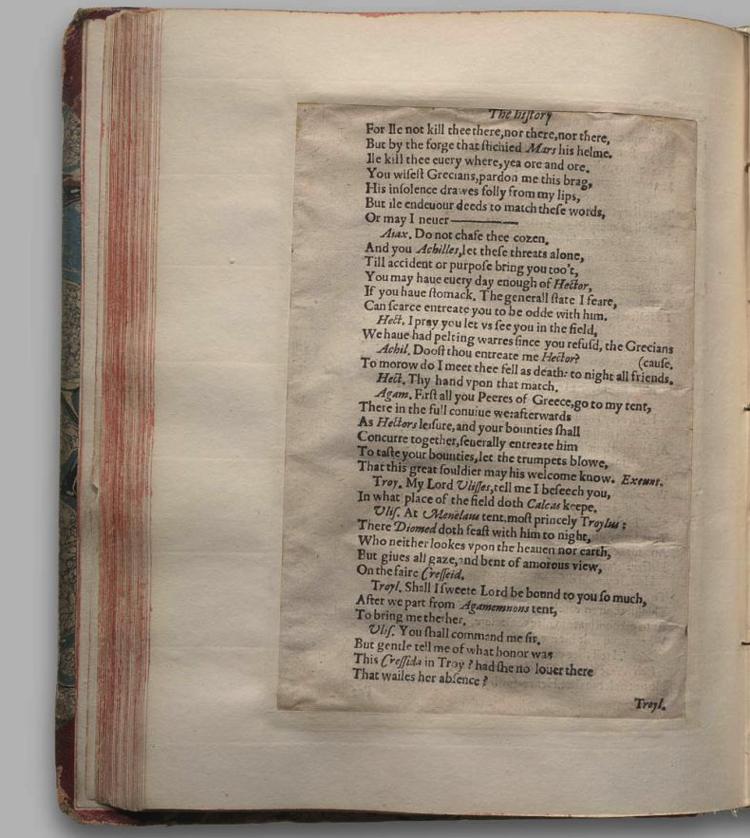 The hiſtory
For Ile not kill thee there, nor there, nor there,
But by the forge that ſtichied Mars his helme.
Ile kill thee euery where, yea ore and ore.
You wiſeſt Grecians, pardon me this brag,
His inſolence drawes folly from my lips,
But ile endeuour deeds to match theſe words,
Or may I neuer ———
Aiax. Do not chafe thee cozen,
And you Achilles, let theſe threats alone,
Till accident or purpoſe bring you too't,
You may haue euery day enough of Hector,
If you haue ſtomack. The generall ſtate I feare,
Can ſcarce entreate you to be odde with him.
Hect. I pray you let vs ſee you in the field,
We haue had pelting warres ſince you refuſd, the Grecians
Achil. Dooſt thou entreate me Hector? (cauſe.
To morow do I meet thee fell as death: to night all friends.
Hect. Thy hand vpon that match.
Agam. Firſt all you Peeres of Greece, go to my tent,
There in the full conuiue we: afterwards
As Hectors leiſure, and your bounties ſhall
Concurre together, ſeuerally entreate him
To taſte your bounties, let the trumpets blowe,
That this great ſouldier may his welcome know. Exeunt.
Troy. My Lord Vliſſes, tell me I beſeech you,
In what place of the field doth Calcas keepe.
Vliſ. At Menelaus tent, moſt princely Troylus:
There Diomed doth feaſt with him to night,
Who neither lookes vpon the heauen nor earth,
But giues all gaze, and bent of amorous view,
On the faire Creſſeid.
Troyl. Shall I ſweete Lord be bound to you ſo much,
After we part from Agamemnons tent,
To bring me thether.
Vliſ. You ſhall command me ſir.
But gentle tell me of what honor was
This Creſſida in Troy? had ſhe no louer there
That wailes her abſence?
Troyl.